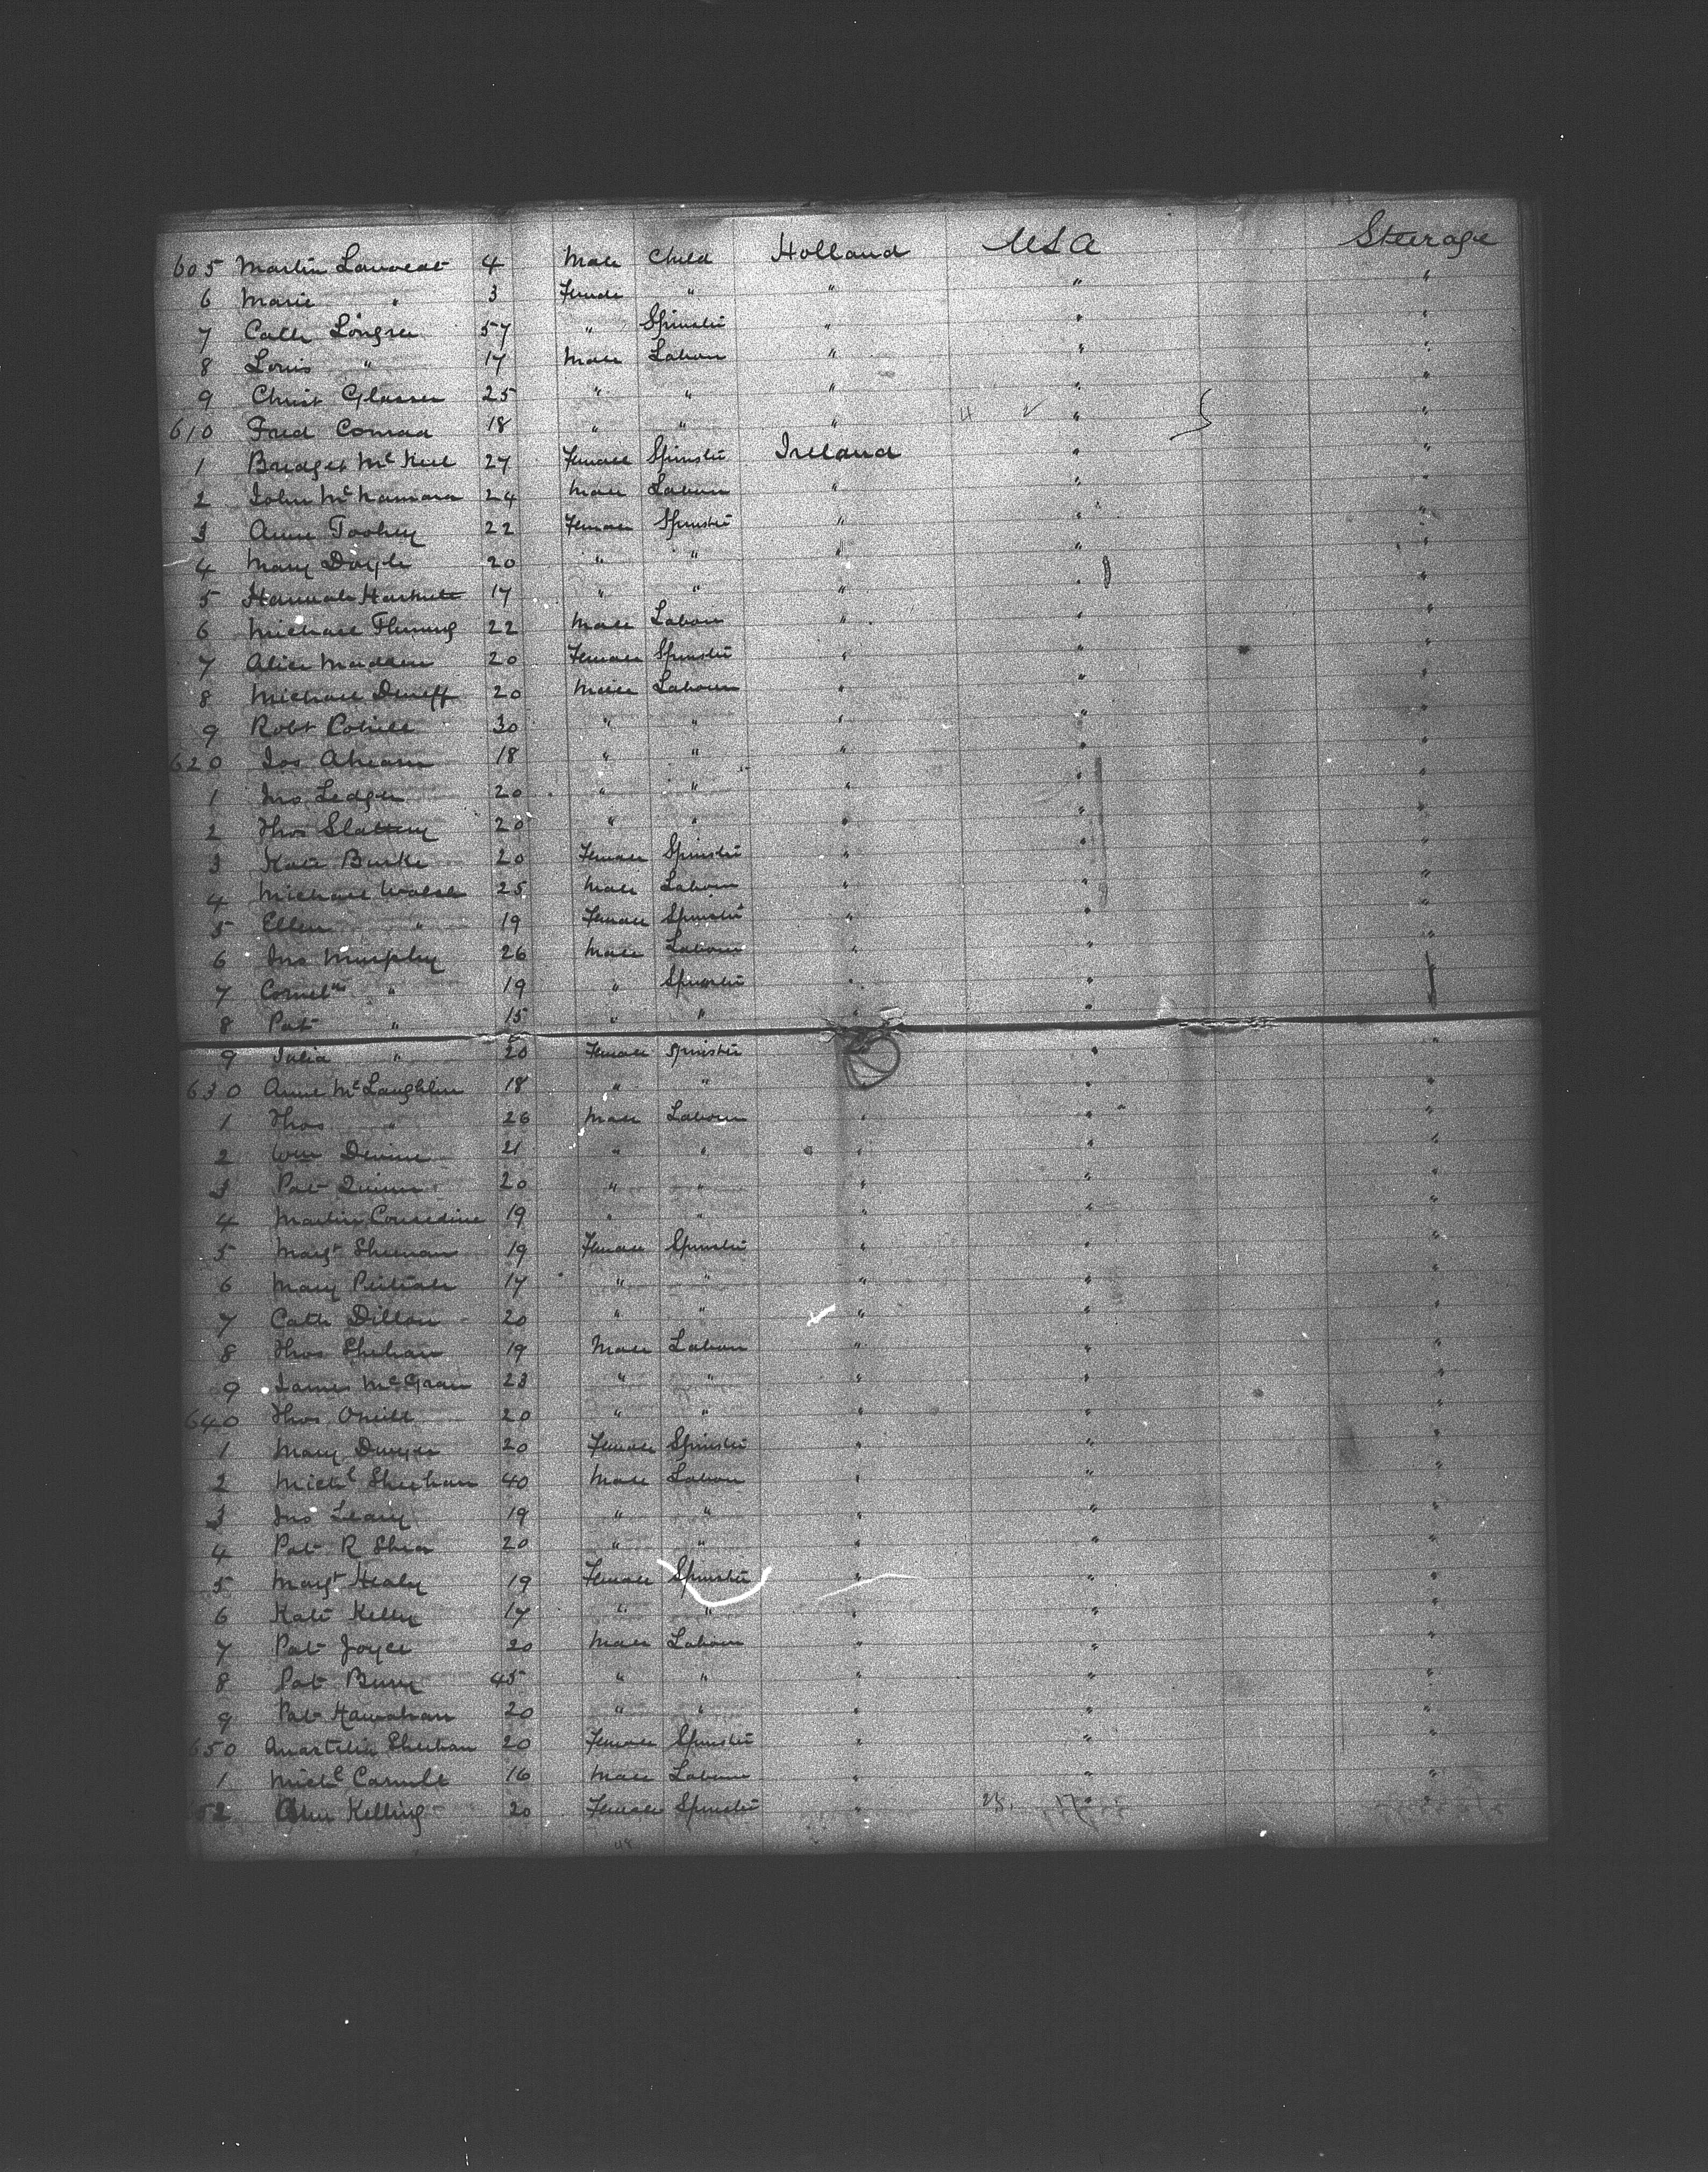 605 Martin Lauveat 4 Male Child Holland USA Steerage
6 Marie " 3 Female " " " "
7 Cath 57 " Spinster " " "
8 Louis " 17 Male Labour " " "
9 Christ Glasser 25 " " " " "
610 Fred Conrad 18 " " " " "
1 Bridget 27 Female Spinster Ireland " "
2 John McNamara 24 Male Labour " " "
3 Anne Toohey 22 Female Spinster " " "
4 Mary Doyle 20 " " " " "
5 Hannah 17 " " " " "
6 Michael Fleming 22 Male Labour " " "
7 Alice Madden 20 Female Spinster " " "
8 Michael 20 Male Labour " " "
9 Robt 30 " " " " "
620 Jos Ahearn 18 " " " " "
1 Jno Ledger 20 " " " " "
2 Thos Slattery 20 " " " " "
3 Kate Burke 20 Female Spinster " " "
4 Michael Walsh 25 Male Labour " " "
5 Ellen " 19 Female Spinster " " "
6 Jno Murphy 26 Male Labour " " "
7 Cornels " 19 " Spinster " "
8 Pat " 15 " " " "
9 Julia " 20 Female Spinster " "
630 Anne McLaughlin 18 " " " "
1 Thos " 26 Male Labour " " "
2 Wm Devine 21 " " " " "
3 Pat Quinn 20 " " " " "
4 Martin Consedine 19 " " " " "
5 Margt 19 Female Spinster " " "
6 Mary 17 " " " " "
7 Cath Dillon 20 " " " " "
8 Thos 19 Male Labour " " "
9 James McGrau 23 " " " " "
640 Thos Oneill 20 " " " " "
1 Mary Dwyer 20 Female Spinster " " "
2 Michl Sheehan 40 Male Labour " " "
3 Jno Leary 19 " " " " "
4 Pat R Shea 20 " " " " "
5 Margt Healy 19 Female Spinster " " "
6 Kate Kelly 17 " " " " "
7 Pat Joyce 20 Male Labour " " "
8 Pat 45 " " " " "
9 Pat 20 " " " " "
650 Sheehan 20 Female Spinster " " "
1 Michl 16 Male Labour " " "
52 Kelling 20 Female Spinster " "